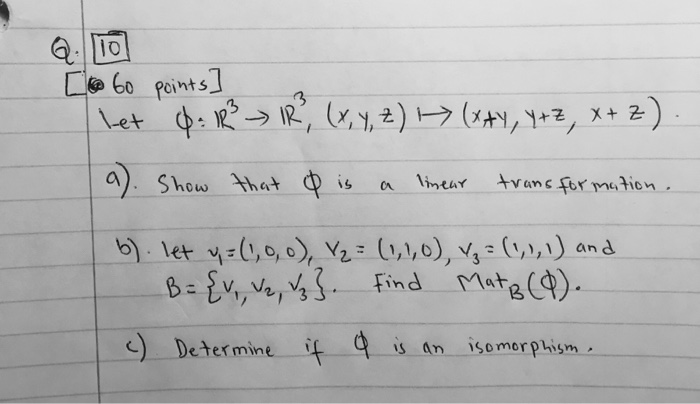 Q. 10
[60 points]
Let φ: ℝ³ → ℝ³, (x, y, z) ↦ (x+y, y+z, x+z).
a). Show that φ is a linear transformation.
b). let v₁=(1,0,0), v₂ = (1,1,0), v₃ = (1,1,1) and
B = {v₁, v₂, v₃}. Find Mat_B(φ).
c) Determine if φ is an isomorphism.